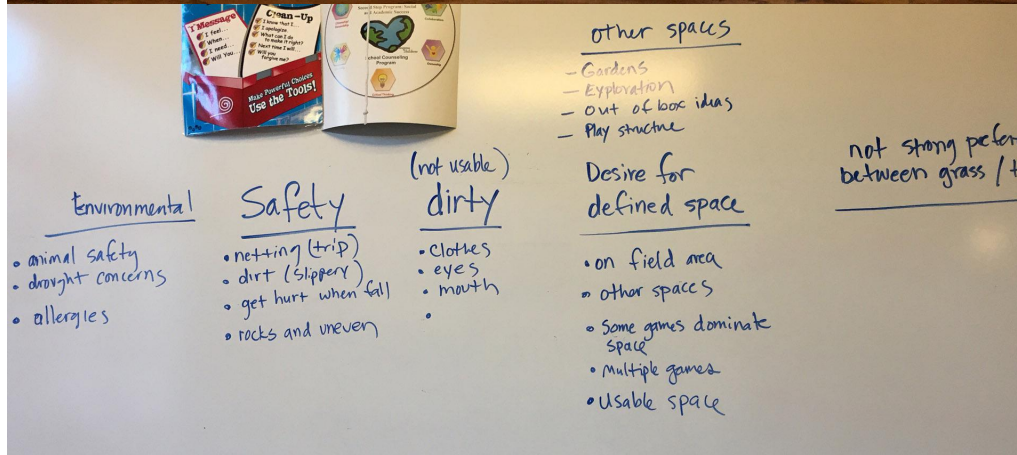 I Message
I feel...
When...
I need...
Will You...
Clean-Up
I know that I...
I apologize.
What can I do
to make it right?
Next time I will...
Will you
forgive me?
Make Powerful Choices
Use the Tools!
School Counseling
Program
other spaces
- Gardens
- Exploration
- out of box ideas
- Play structure
Environmental
• animal safety
• drought concerns
• allergies
Safety
• netting (trip)
• dirt (slippery)
• get hurt when fall
• rocks and uneven
(not usable)
dirty
• clothes
• eyes
• mouth
•
Desire for
defined space
• on field area
• other spaces
• Some games dominate
space
• Multiple games
• Usable space
not strong prefer
between grass / t